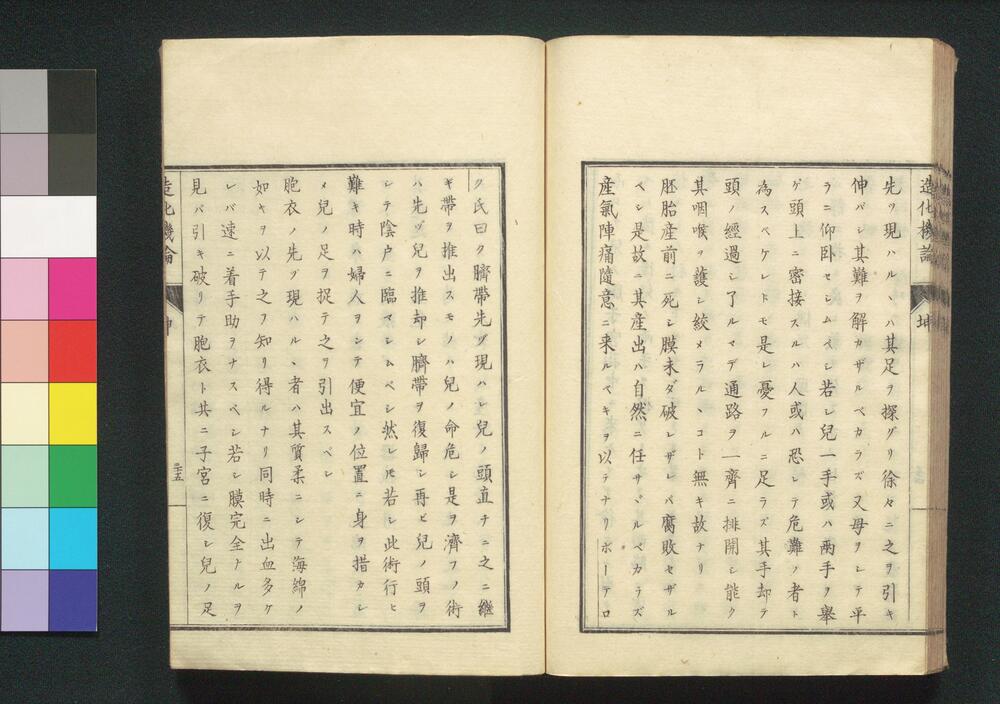 造化機論
坤
先ヅ現ハルヽハ其足ヲ探グリ徐々ニ之ヲ引キ
伸バシ其難ヲ解カザルベカラズ又母ヲシテ平
ラニ仰卧セシムベシ若シ兒一手或ハ兩手ヲ舉
ゲ頭上ニ密接スルハ人或ハ恐レテ危難ノ者ト
為スベケレドモ是レ憂フルニ足ラズ其手却テ
頭ノ經過シ了ルマデ通路ヲ一齊ニ排開シ能ク
其咽喉ヲ護シ絞メラルヽコト無キ故ナリ
胚胎産前ニ死シ膜未ダ破レザレバ腐敗セザル
ベシ是故ニ其産出ハ自然ニ任サヾルベカラズ
産氣陣痛隨意ニ来ルベキヲ以テナリボーテロ
ク氏曰ク臍帶先ヅ現ハレ兒ノ頭直チニ之ニ繼
ギ帶ヲ推出スモノハ兒ノ命危シ是ヲ濟フノ術
ハ先ヅ兒ヲ推却シ臍帶ヲ復歸シ再ビ兒ノ頭ヲ
シテ陰户ニ臨マシムベシ然レ𪜈若シ此術行ヒ
難キ時ハ婦人ヲシテ便宜ノ位置ニ身ヲ措カシ
メ兒ノ足ヲ捉テ之ヲ引出スベシ
胞衣ノ先ヅ現ハルヽ者ハ其質柔ニシテ海綿ノ
如キヲ以テ之ヲ知リ得ルナリ同時ニ出血多ケ
レバ速ニ着手助ヲナスベシ若シ膜完全ナルヲ
見バ引キ破リテ胞衣ト其ニ子宮ニ復シ兒ノ足
造化機論
坤
三十五